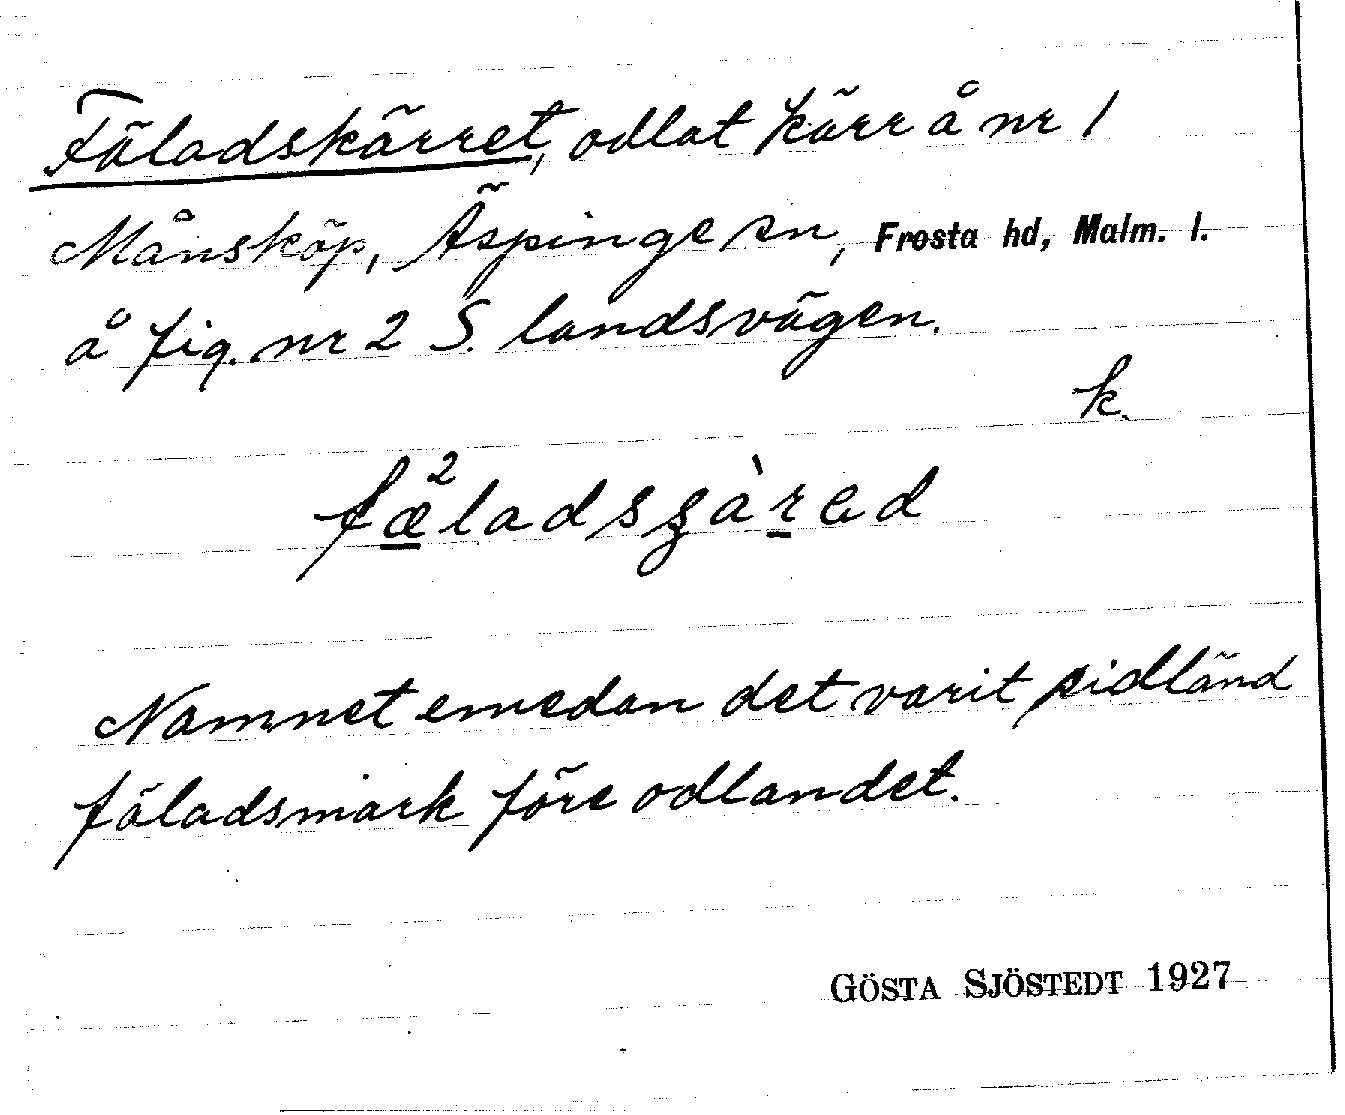 Fäladskärret, odlat kärr å nr 1
Månsköp, Äspinge sn, Frosta hd, Malm. l.
å fig. nr 2 S. landsvägen.
k.
Namnet emedan det varit sidländ
fäladsmark före odlandet.
GÖSTA SJÖSTEDT 1927